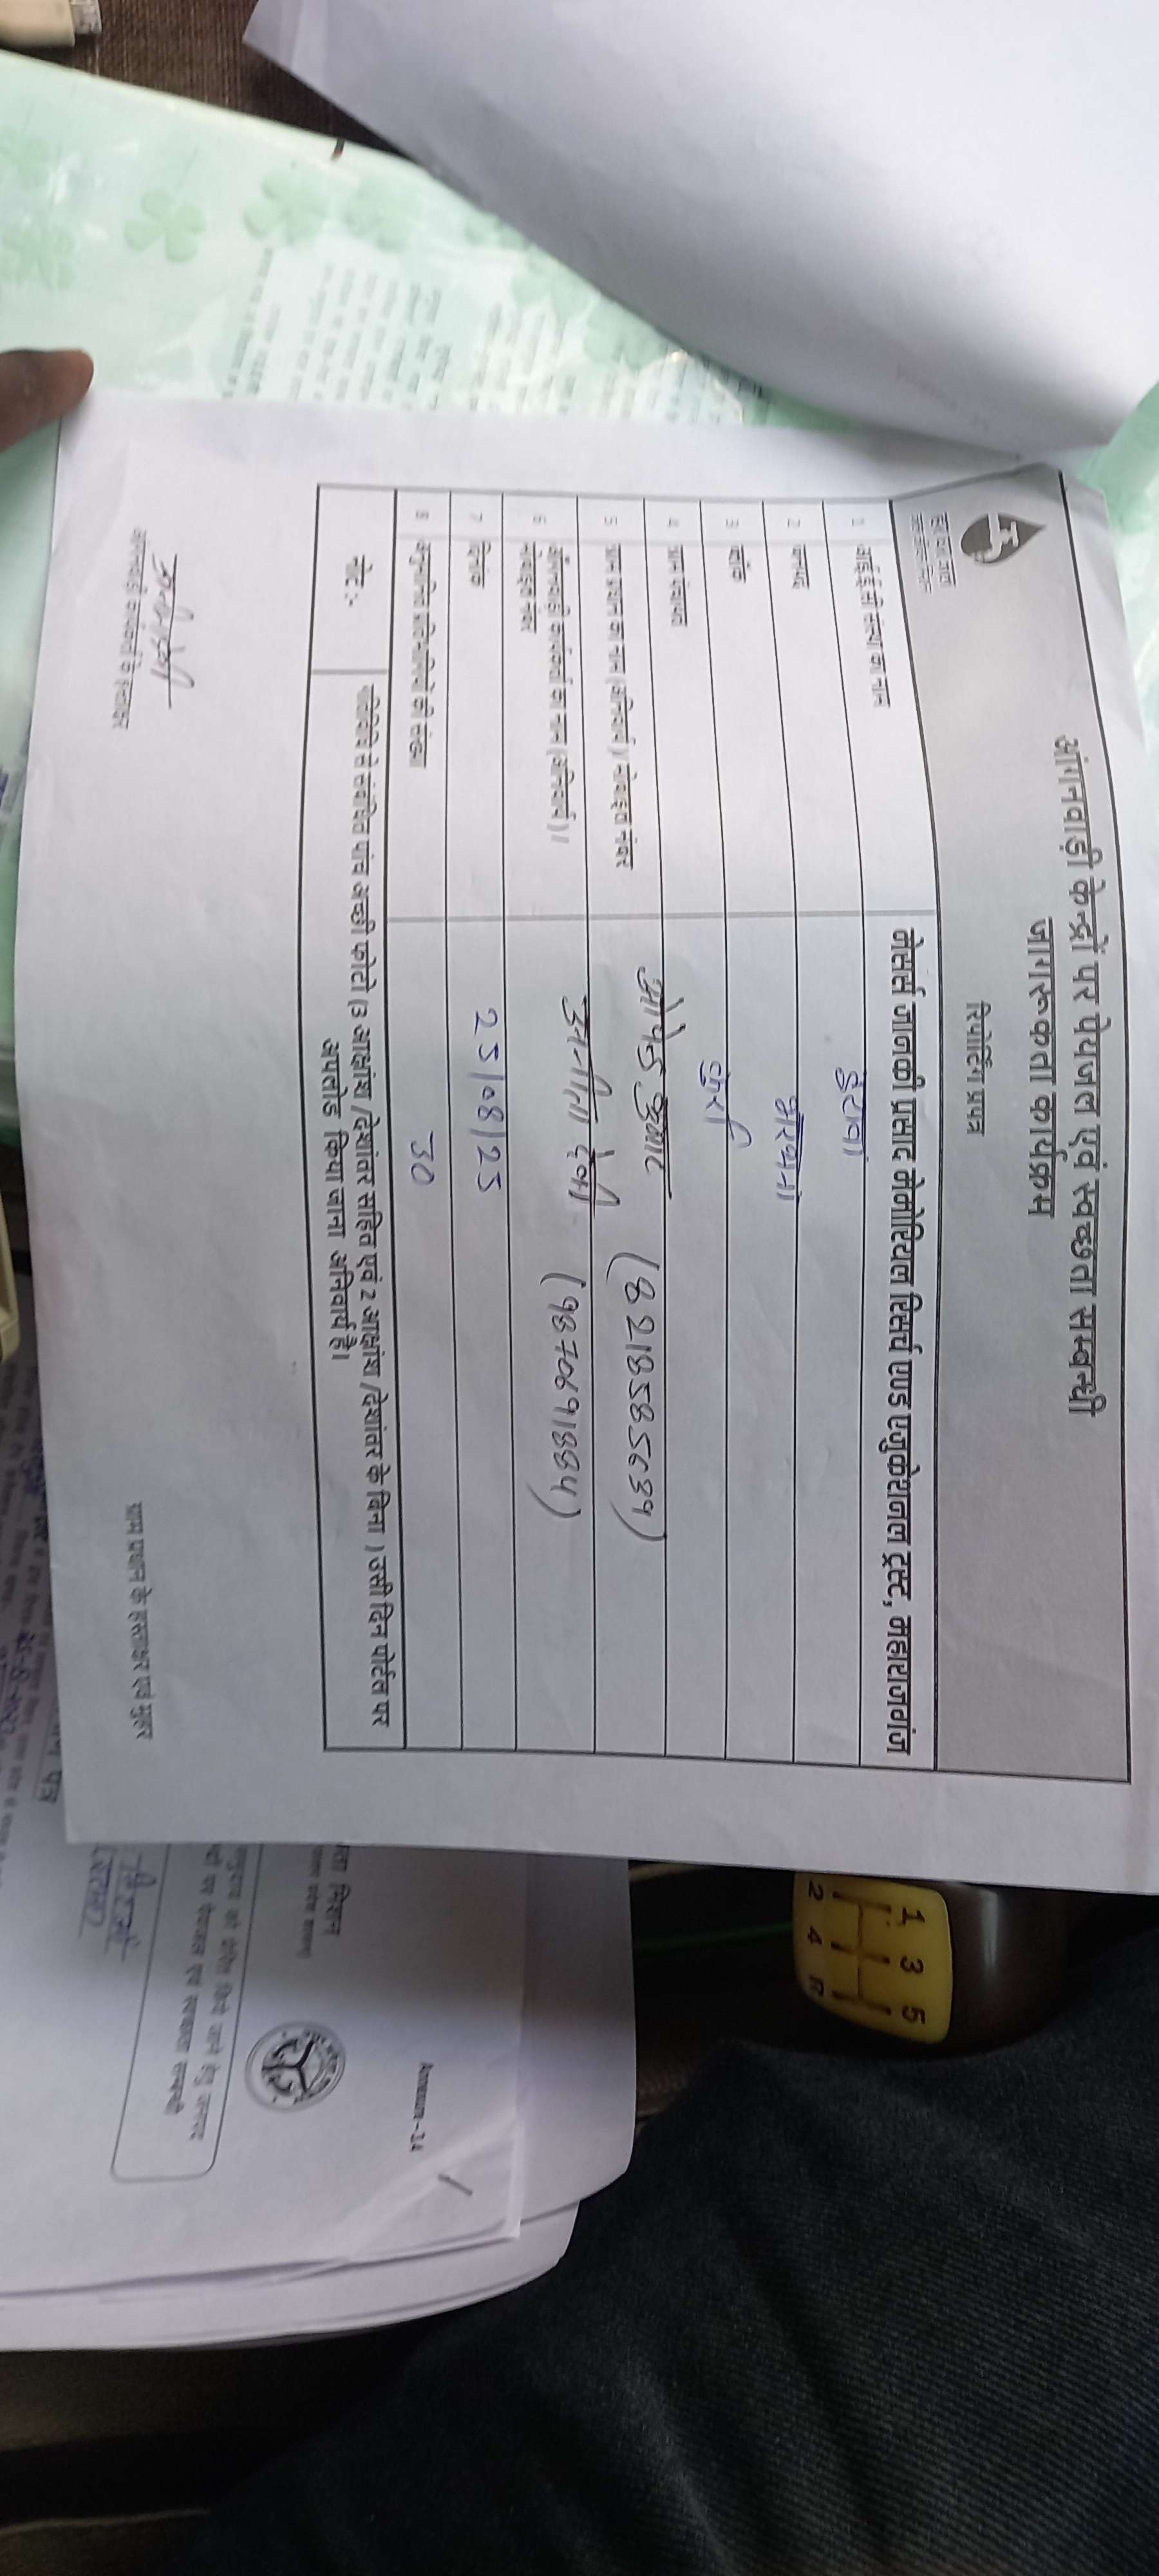 आंगनवाड़ी केन्द्रों पर पेयजल एवं स्वच्छता सम्बन्धी
जागरूकता कार्यक्रम
रिपोर्टिंग प्रपत्र
हर घर जल
जल जीवन मिशन
1 आई.ई.सी संस्था का नाम मेसर्स जानकी प्रसाद मेमोरियल रिसर्च एण्ड एजुकेशनल ट्रस्ट, महाराजगंज
2 जनपद इटावा
3 ब्लॉक भरथना
4 ग्राम पंचायत कुर्रा
5 ग्राम प्रधान का नाम (अनिवार्य)/ मोबाइल नंबर कुमार (8218585639)
6 आँगनवाड़ी कार्यकर्ता का नाम (अनिवार्य)/ अनीता देवी (9870691884)
मोबाइल नंबर
7 दिनांक 25/08/25
8 अनुमानित प्रतिभागियों की संख्या 30
नोट:- गतिविधि से संबंधित पांच अच्छी फोटो (3 अक्षांश/देशांतर सहित एवं 2 अक्षांश/देशांतर के बिना) उसी दिन पोर्टल पर
अपलोड किया जाना अनिवार्य है।
आंगनवाड़ी कार्यकर्ता के हस्ताक्षर
ग्राम प्रधान के हस्ताक्षर एवं मुहर
1 3 5
2 4 R
Annexure-2.4